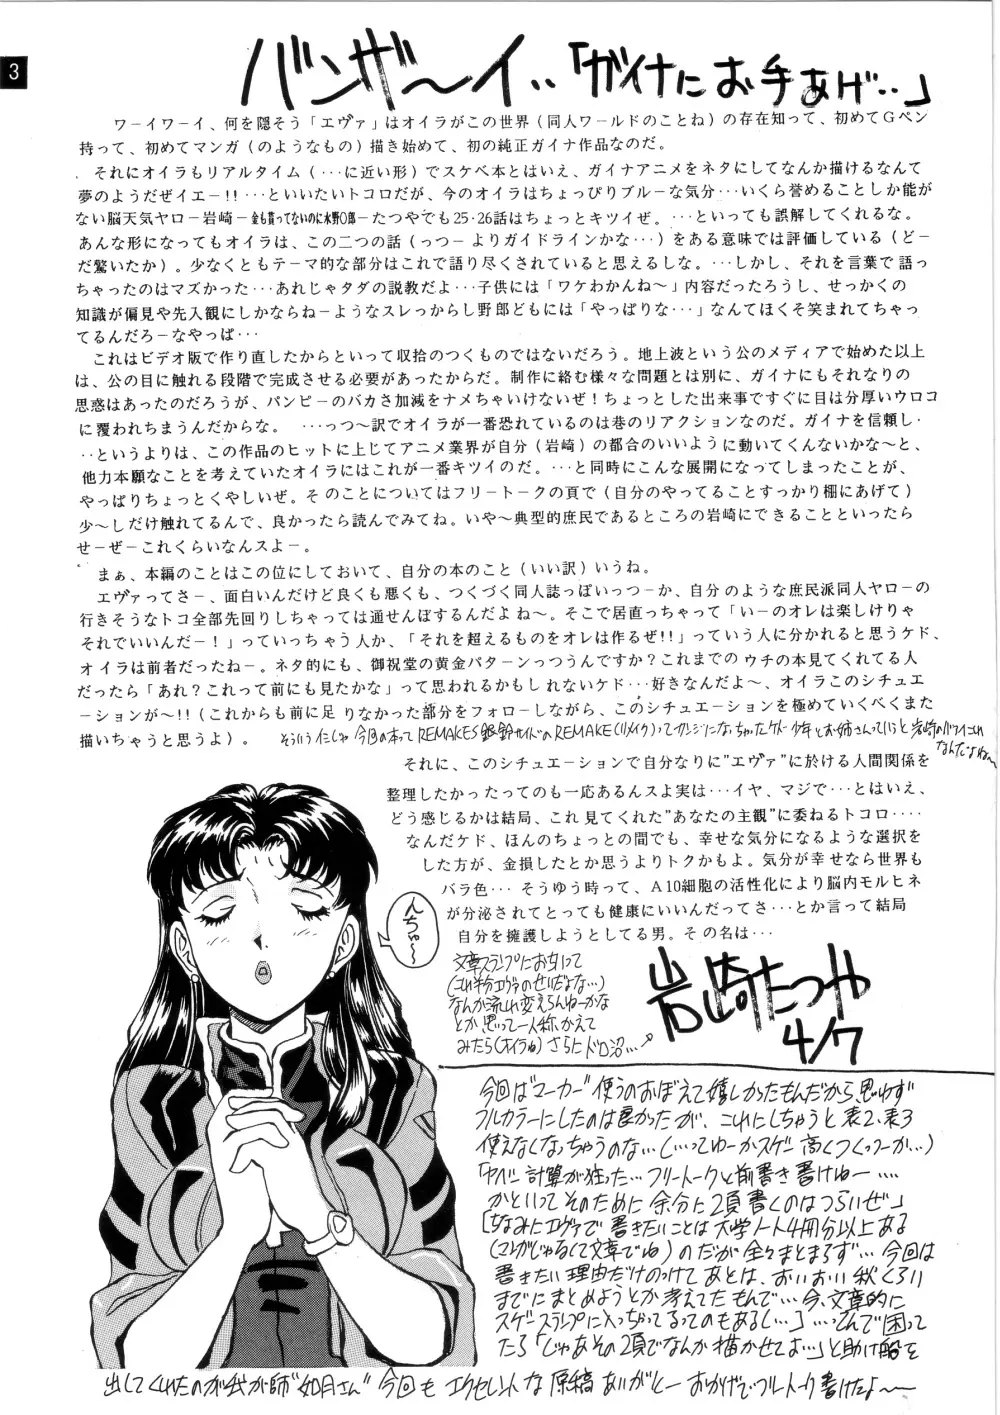 3
バンザ～イ‥「ガイナにお手あげ‥」
ワーイワーイ、何を隠そう「エヴァ」はオイラがこの世界（同人ワールドのことね）の存在知って、初めてGペン
持って、初めてマンガ（のようなもの）描き始めて、初の純正ガイナ作品なのだ。
それにオイラもリアルタイム（･･･に近い形）でスケベ本とはいえ、ガイナアニメをネタにしてなんか描けるなんて
夢のようだぜイエー!!･･･といいたいトコロだが、今のオイラはちょっぴりブルーな気分･･･いくら誉めることしか能が
ない脳天気ヤロー岩崎ー金も貰ってないのに水野〇郎ーたつやでも25･26話はちょっとキツイぜ。･･･といっても誤解してくれるな。
あんな形になってもオイラは、この二つの話（っつーよりガイドラインかな･･･）をある意味では評価している（どー
だ驚いたか）。少なくともテーマ的な部分はこれで語り尽くされていると思えるしな。･･･しかし、それを言葉で語っ
ちゃったのはマズかった･･･あれじゃタダの説教だよ･･･子供には「ワケわかんね～」内容だったろうし、せっかくの
知識が偏見や先入観にしかならねーようなスレっからし野郎どもには「やっぱりな･･･」なんてほくそ笑まれてちゃっ
てるんだろーなやっぱ･･･
これはビデオ版で作り直したからといって収拾のつくものではないだろう。地上波という公のメディアで始めた以上
は、公の目に触れる段階で完成させる必要があったからだ。制作に絡む様々な問題とは別に、ガイナにもそれなりの
思惑はあったのだろうが、パンピーのバカさ加減をナメちゃいけないぜ！ちょっとした出来事ですぐに目は分厚いウロコ
に覆われちまうんだからな。　･･･っつ～訳でオイラが一番恐れているのは巷のリアクションなのだ。ガイナを信頼し･
･･というよりは、この作品のヒットに上じてアニメ業界が自分（岩崎）の都合のいいように動いてくんないかな～と、
他力本願なことを考えていたオイラにはこれが一番キツイのだ。･･･と同時にこんな展開になってしまったことが、
やっぱりちょっとくやしいぜ。そのことについてはフリートークの頁で（自分のやってることすっかり棚にあげて）
少～しだけ触れてるんで、良かったら読んでみてね。いや～典型的庶民であるところの岩崎にできることといったら
せーぜーこれくらいなんスよー。
まぁ、本編のことはこの位にしておいて、自分の本のこと（いい訳）いうね。
エヴァってさー、面白いんだけど良くも悪くも、つくづく同人誌っぽいっつーか、自分のような庶民派同人ヤローの
行きそうなトコ全部先回りしちゃっては通せんぼするんだよね～。そこで居直っちゃって「いーのオレは楽しけりゃ
それでいいんだー！」っていっちゃう人か、「それを超えるものをオレは作るぜ!!」っていう人に分かれると思うケド、
オイラは前者だったねー。ネタ的にも、御祝堂の黄金パターンっつうんですか？これまでのウチの本見てくれてる人
だったら「あれ？これって前にも見たかな」って思われるかもしれないケド･･･好きなんだよ～、オイラこのシチュエ
ーションが～!!（これからも前に足りなかった部分をフォローしながら、このシチュエーションを極めていくべくまた
描いちゃうと思うよ）。 そういうイミじゃ今回の本って REMAKES 銀鈴サイドのREMAKE(リメイク)ってカンジになっちゃったケド 少年とお姉さんっていうと岩崎のパワイこれ
なんだよね～
それに、このシチュエーションで自分なりに"エヴァ"に於ける人間関係を
整理したかったってのも一応あるんスよ実は･･･イヤ、マジで･･･とはいえ、
どう感じるかは結局、これ見てくれた"あなたの主観"に委ねるトコロ････
なんだケド、ほんのちょっとの間でも、幸せな気分になるような選択を
した方が、金損したとか思うよりトクかもよ。気分が幸せなら世界も
バラ色･･･そうゆう時って、A10細胞の活性化により脳内モルヒネ
が分泌されてとっても健康にいいんだってさ･･･とか言って結局
自分を擁護しようとしてる男。その名は･･･
んちゅ～
岩崎たつや
4/7
文章スランプにおちいて
(これ半分エヴァのせいだよな…)
なんか流れ変えらんねーかな
とか思って一人称かえて
みたら(オイラね) さらにドロ沼…
今回は"マーカー"使うのおぼえて嬉しかったもんだから思わず
フルカラーにしたのは良かったが、これにしちゃうと表2、表3
使えなくなっちゃうのな…(…ってゆーかスゲー高くつくっつーか…)
「ヤベー計算が狂った…フリートークと前書き書けねー…
かといってそのために余分に2頁書くのはつらいぜ」
[ちなみにエヴァで書きたいことは大学ノート4冊分以上ある
(マンガじゃなくて文章でね)のだが全々まとまらず…今回は
書きたい理由だけのっけてあとは、おいおい秋くらい
までにまとめようとか考えてたもんで…今、文章的に
スゲースランプに入っちゃってるってのもあるし…]…ってんで困って
たら「じゃあその2頁でなんか描かせてよ…」と助け船を
出してくれたのが我が師"如月さん"今回もエクセレントな原稿ありがとー おかげでフリートーク書けたよ～～